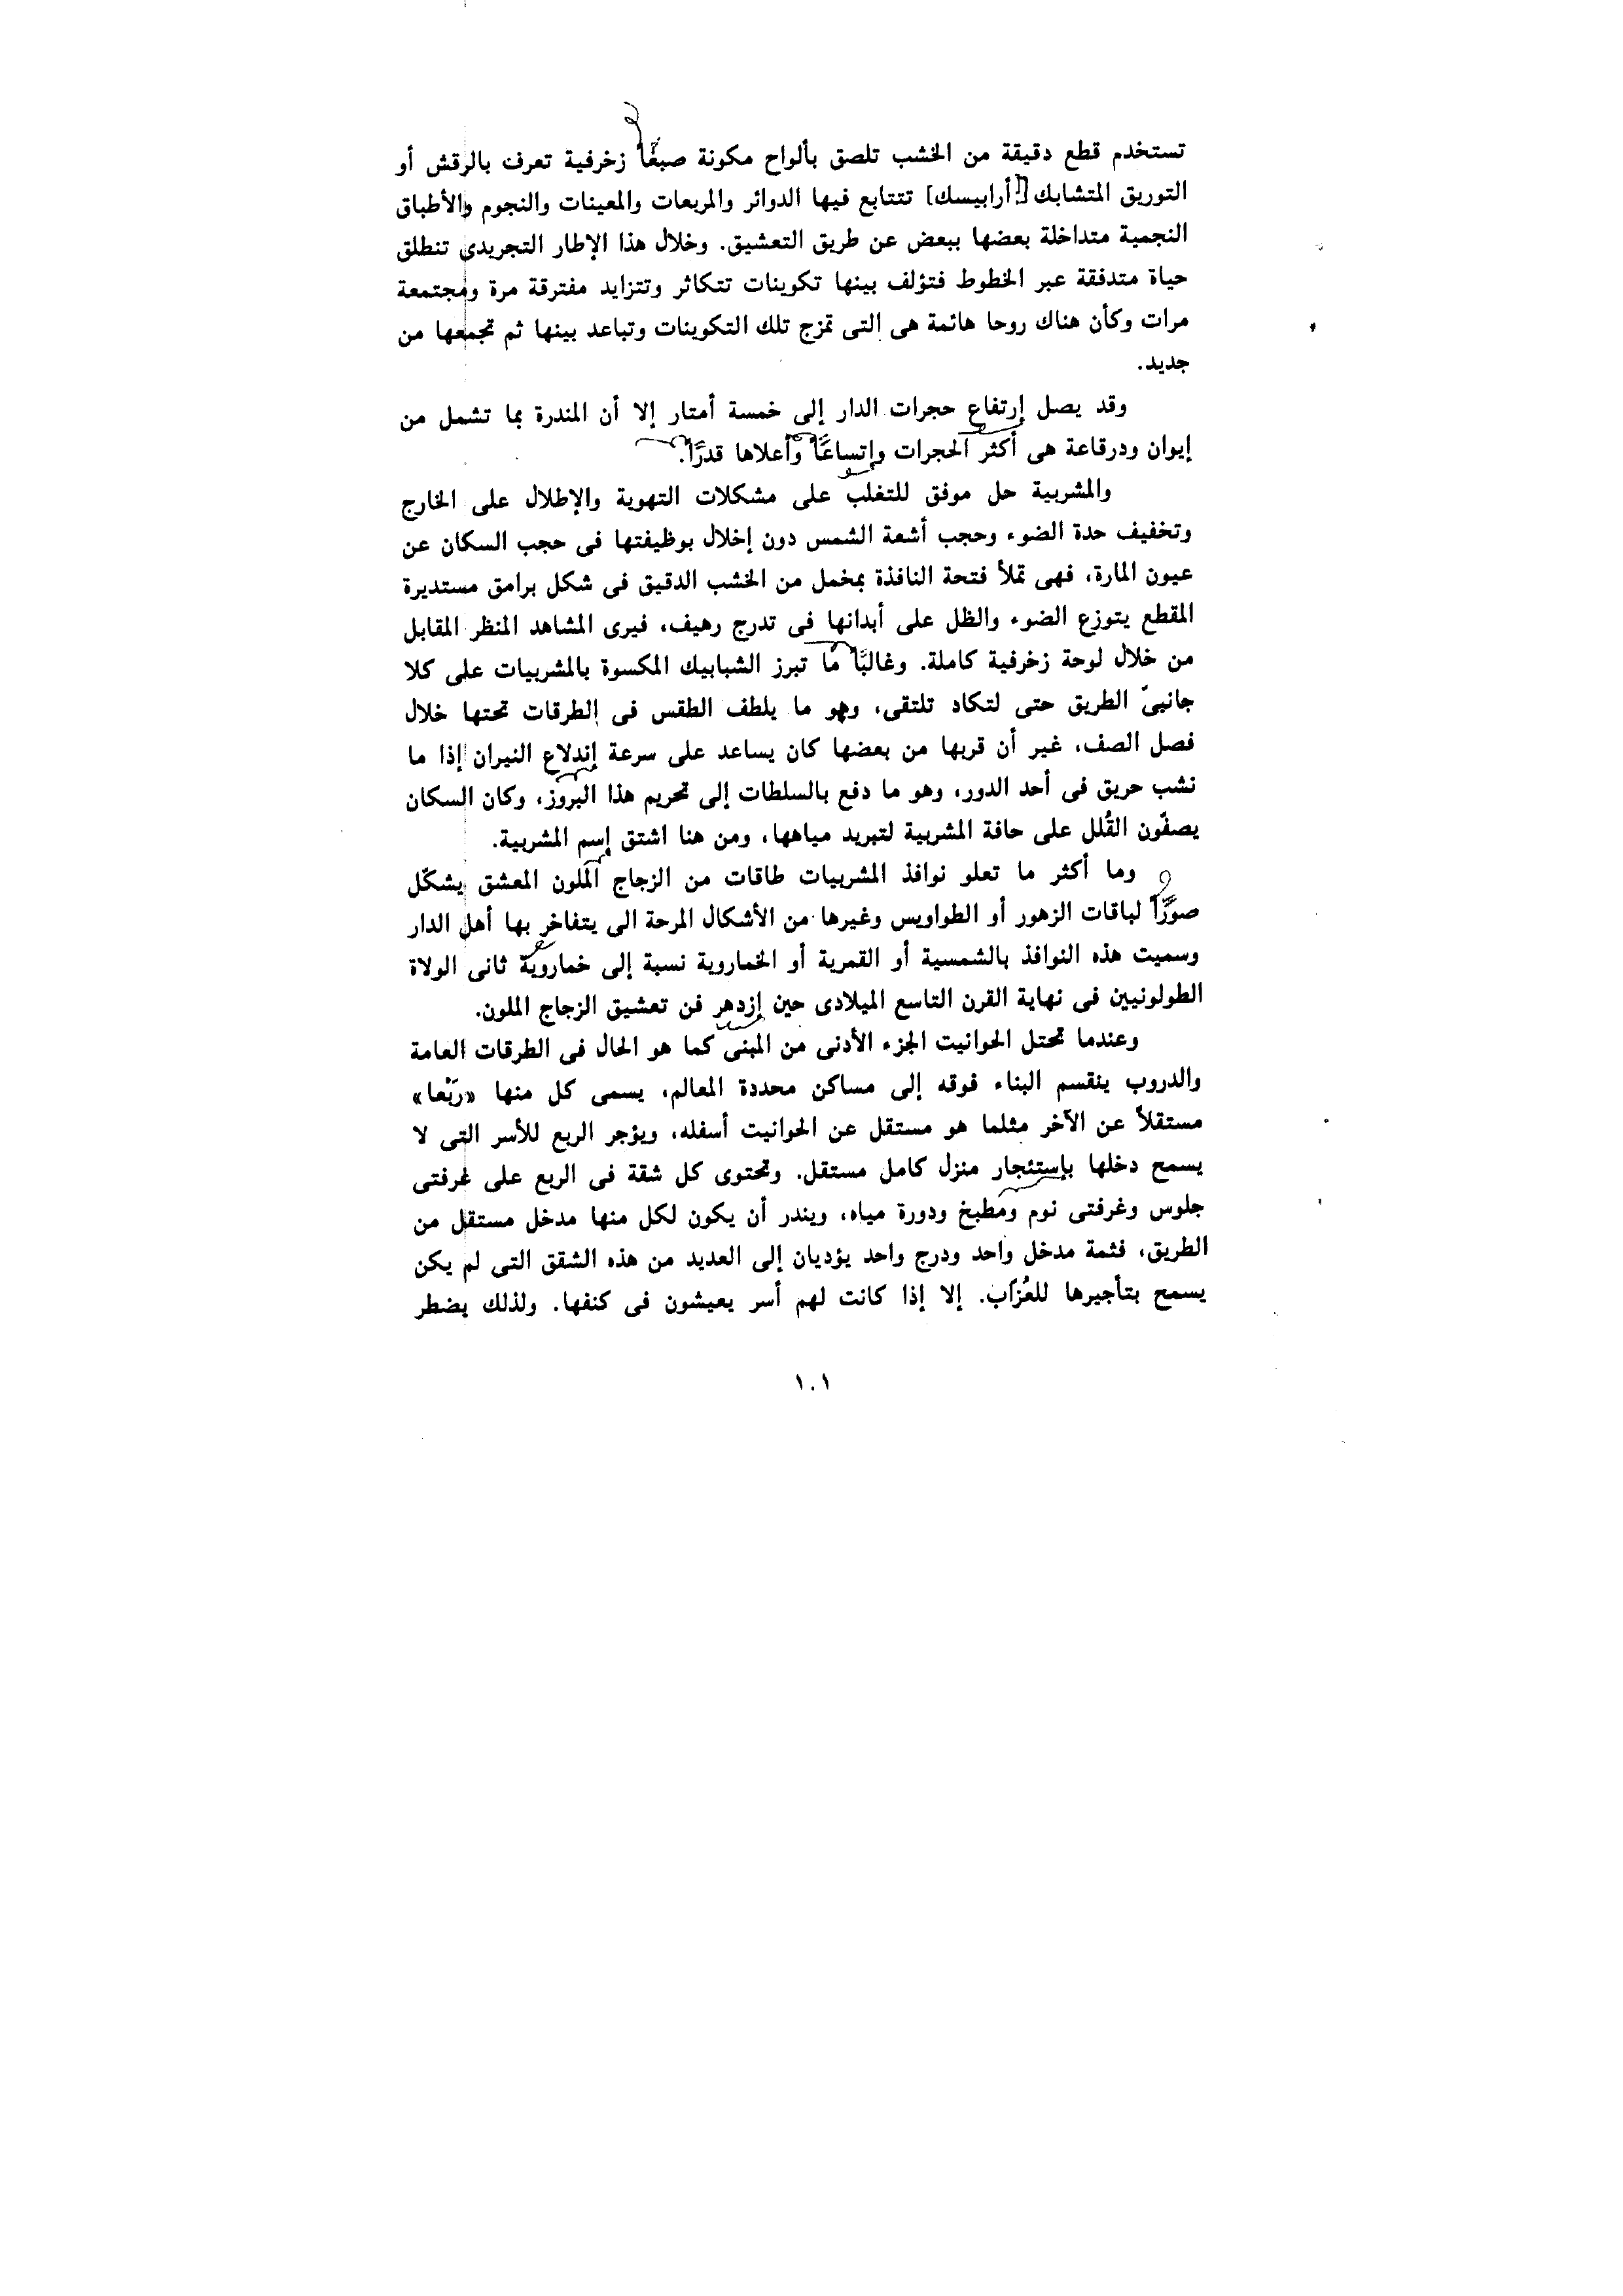 تستخدم قطع دقيقة من الخشب تلصق بألواح مكونة صبغًا زخرفية تعرف بالرقش أو
التوريق المتشابك [أرابيسك] تتتابع فيها الدوائر والمربعات والمعينات والنجوم والأطباق
النجمية متداخلة بعضها ببعض عن طريق التعشيق. وخلال هذا الإطار التجريدى تنطلق
حياة متدفقة عبر الخطوط فتؤلف بينها تكوينات تتكاثر وتتزايد مفترقة مرة ومجتمعة
مرات وكأن هناك روحا هائمة هى التى تمزج تلك التكوينات وتباعد بينها ثم تجمعها من
جديد.
وقد يصل إرتفاع حجرات الدار إلى خمسة أمتار إلا أن المندرة بما تشمل من
إيوان ودرقاعة هى أكثر الحجرات وإتساعًا وأعلاها قدرًا.
والمشربية حل موفق للتغلب على مشكلات التهوية والإطلال على الخارج
وتخفيف حدة الضوء وحجب أشعة الشمس دون إخلال بوظيفتها فى حجب السكان عن
عيون المارة، فهى تملأ فتحة النافذة بمخمل من الخشب الدقيق فى شكل برامق مستديرة
المقطع يتوزع الضوء والظل على أبدانها فى تدرج رهيف، فيرى المشاهد المنظر المقابل
من خلال لوحة زخرفية كاملة. وغالبًا ما تبرز الشبابيك المكسوة بالمشربيات على كلا
جانبىّ الطريق حتى لتكاد تلتقى، وهو ما يلطف الطقس فى الطرقات تحتها خلال
فصل الصف، غير أن قربها من بعضها كان يساعد على سرعة إندلاع النيران إذا ما
نشب حريق فى أحد الدور، وهو ما دفع بالسلطات إلى تحريم هذا البروز، وكان السكان
يصفّون القُلل على حافة المشربية لتبريد مياهها، ومن هنا اشتق إسم المشربية.
وما أكثر ما تعلو نوافذ المشربيات طاقات من الزجاج الملون المعشق يشكّل
صورًا لباقات الزهور أو الطواويس وغيرها من الأشكال المرحة الى يتفاخر بها أهل الدار
وسميت هذه النوافذ بالشمسية أو القمرية أو الخماروية نسبة إلى خماروية ثانى الولاة
الطولونيين فى نهاية القرن التاسع الميلادى حين إزدهر فن تعشيق الزجاج الملون.
وعندما تحتل الحوانيت الجزء الأدنى من المبنى كما هو الحال فى الطرقات العامة
والدروب ينقسم البناء فوقه إلى مساكن محددة المعالم، يسمى كل منها «رَبْعا»
مستقلاً عن الآخر مثلما هو مستقل عن الحوانيت أسفله، ويؤجر الربع للأسر التى لا
يسمح دخلها بإستئجار منزل كامل مستقل. وتحتوى كل شقة فى الربع على غرفتى
جلوس وغرفتى نوم ومطبخ ودورة مياه، ويندر أن يكون لكل منها مدخل مستقل من
الطريق، فثمة مدخل واحد ودرج واحد يؤديان إلى العديد من هذه الشقق التى لم يكن
يسمح بتأجيرها للعُزاب. إلا إذا كانت لهم أسر يعيشون فى كنفها. ولذلك يضطر
١٠١